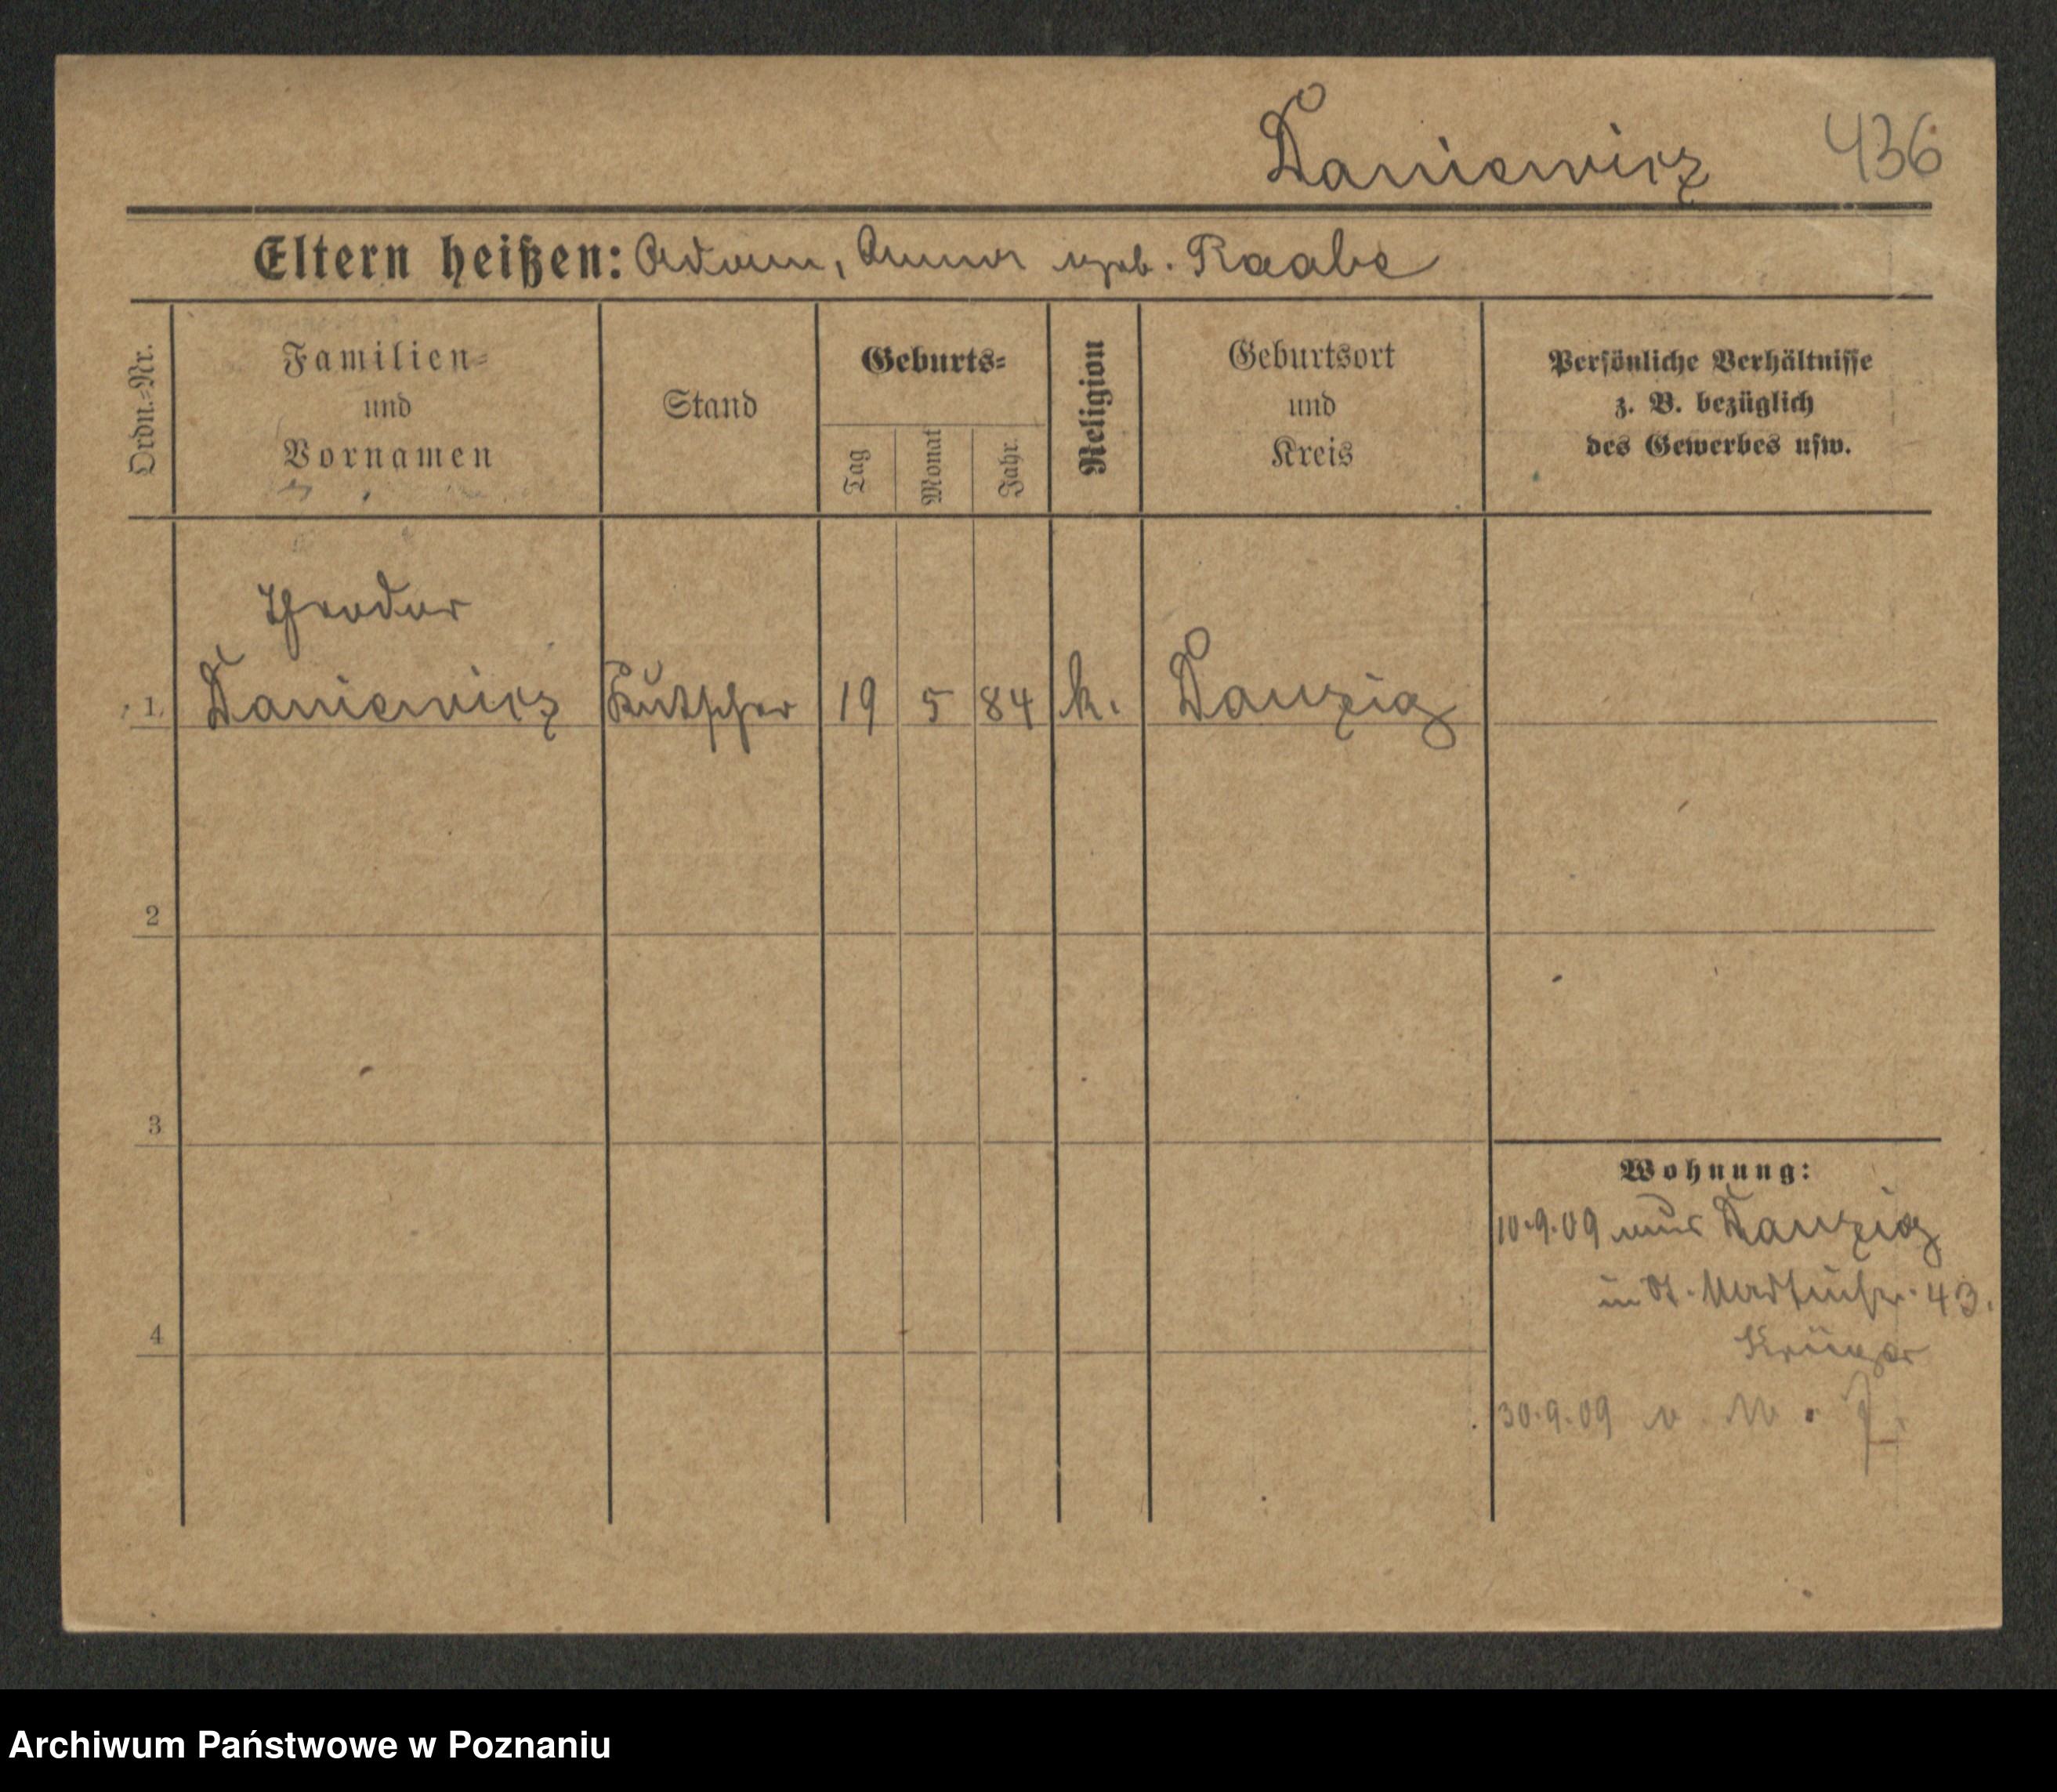 Daniewicz 436
Eltern heißen: Adam, Anna geb. Raabe
Ordn.=Nr.
Familien=
und
Vornamen
Stand
Geburts=
Tag
Monat
Jahr.
Religion
Geburtsort
und
Kreis
Persönliche Verhältnisse
z. B. bezüglich
des Gewerbes usw.
Theodor
1 Daniewicz Kutscher 19 5 84 k. Danzig
2
3
4
Wohnung:
10.9.09 aus Danzig
in St. Martinstr. 43.
Krüger
30.9.09
Archiwum Państwowe w Poznaniu